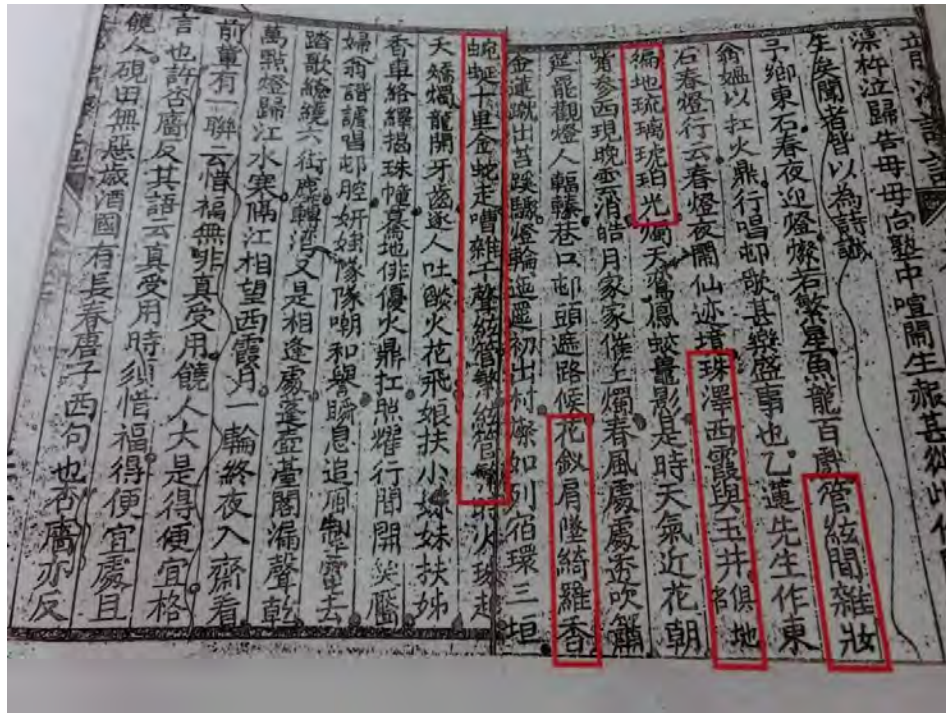 凜杵泣歸告母母向塾中喧鬧生赧甚從此
生矣聞者皆以為詩讖
亭鄉東石春夜迎燈燦若繁星魚龍百戲管絃間雜妝
翁媼以扛火鼎行唱邨歌甚樂盛事也乙蓮先生作東
石春燈行云春燈夜鬧仙迹墳珠澤西霞與玉井俱地名
徧地琉璃琥珀光燭天鸞鳳蛟鼉影是時天氣近花朝
觜參西現晚雲消皓月家家催上燭春風處處丞吹簫
筵罷觀燈人輻輳巷口邨頭遞路候花釵肩墜綺羅香
金蓮蹴出苔蹊驟燈輪迤邐初出村燦如列宿環三垣
蜿蜒十里金蛇走嘈雜千聲絃管繁絃管繁火珠起
夭矯燭龍開牙齒逐人吐燄火花飛娘扶小妹妹扶姊
香車絡繹揭珠幢驀地俳優火鼎扛照耀行間開笑靨
婦翁諧謔唱邨腔妍媸隊隊嘲和譽瞬息追風制電去
踏歌繚繞六街塵轉灣又是相逢處蓬壺臺閣漏聲乾
萬點燈歸江水寒隔江相望西霞月一輪終夜入齋看
前輩有一聯云惜福無非真受用饒人大是得便宜格
言也許否廎反其語云真受用時須惜福得便宜處且
饒人硯田無惡歲酒國有長春唐子西句也否廎亦反